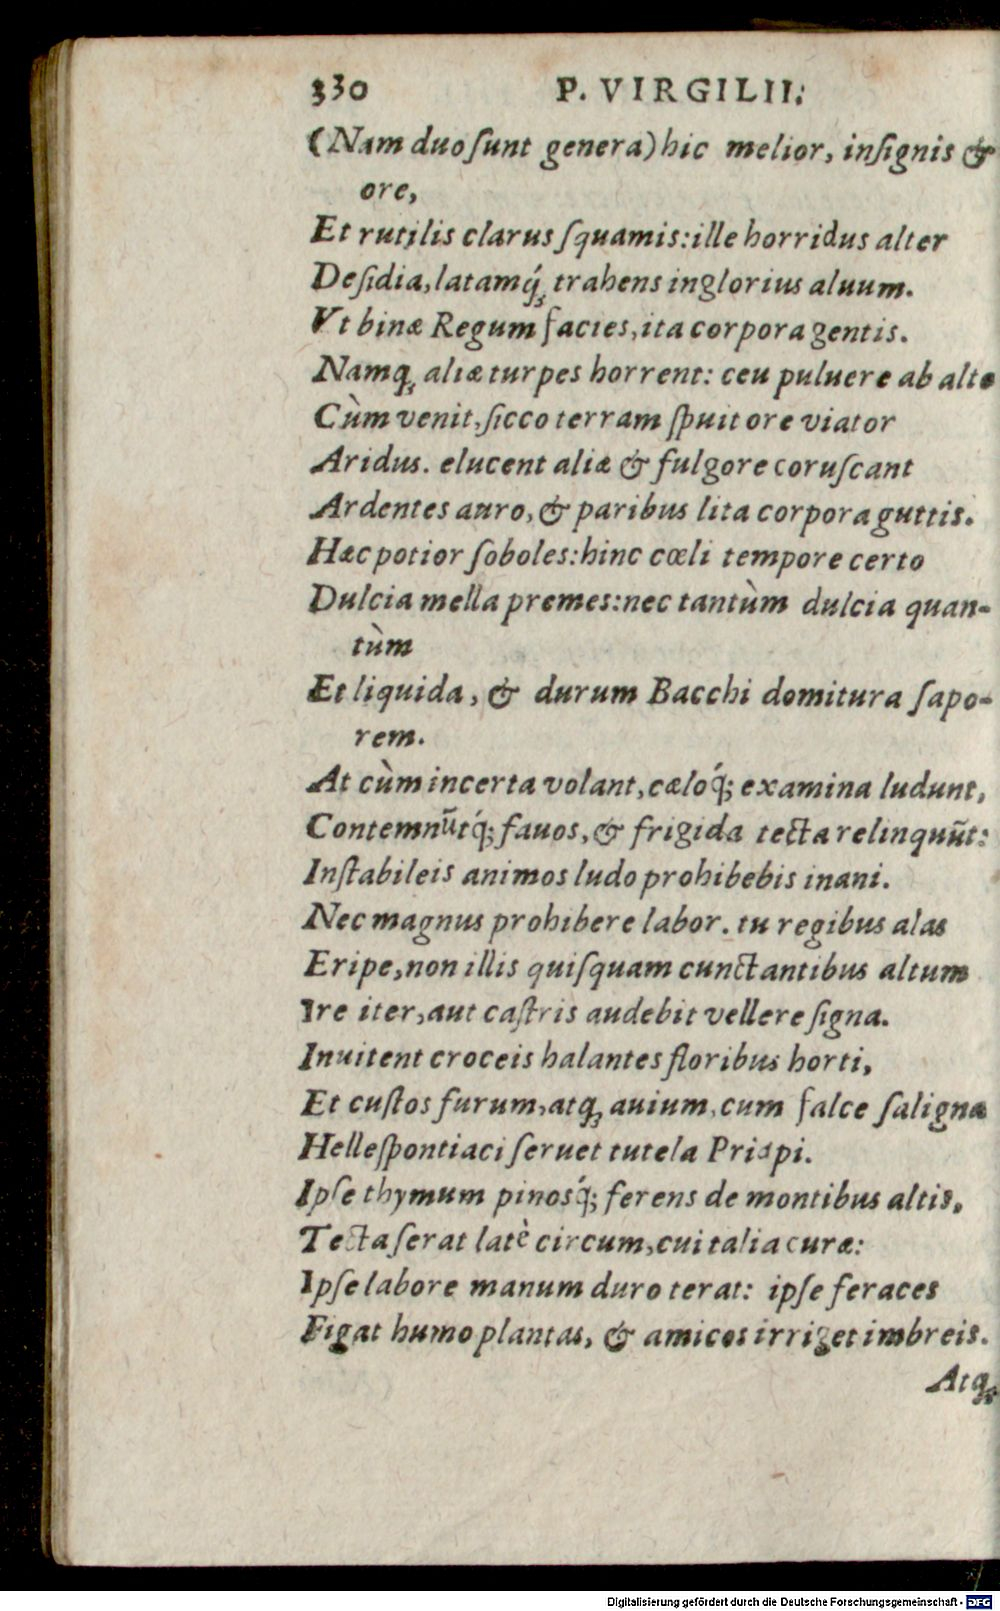 330 P. VIRGILII.
(Nam duo ſunt genera) hic melior, inſignis &
ore,
Et rutilis clarus ſquamis: ille horridus alter
Deſidia, latamq́; trahens inglorius aluum.
Vt binæ Regum facies, ita corpora gentis.
Namq; aliæ turpes horrent: ceu puluere ab alto
Cùm venit, ſicco terram ſpuit ore viator
Aridus. elucent aliæ & fulgore coruſcant
Ardentes auro, & paribus lita corpora guttis.
Hæc potior ſoboles: hinc cœli tempore certo
Dulcia mella premes: nec tantùm dulcia quan-
tùm
Et liquida, & durum Bacchi domitura ſapo-
rem.
At cùm incerta volant, cæloq́; examina ludunt,
Contemnũtq́; fauos, & frigida tecta relinquũt:
Inſtabileis animos ludo prohibebis inani.
Nec magnus prohibere labor. tu regibus alas
Eripe, non illis quiſquam cunctantibus altum
Ire iter, aut caſtris audebit vellere ſigna.
Inuitent croceis halantes floribus horti,
Et cuſtos furum, atq; auium, cum falce ſaligna
Helleſpontiaci ſeruet tutela Priapi.
Ipſe thymum pinosq́; ferens de montibus altis,
Tecta ſerat latè circum, cui talia curæ:
Ipſe labore manum duro terat: ipſe feraces
Figat humo plantas, & amicos irriget imbreis.
Atq;
Digitalisierung gefördert durch die Deutsche Forschungsgemeinschaft - DFG